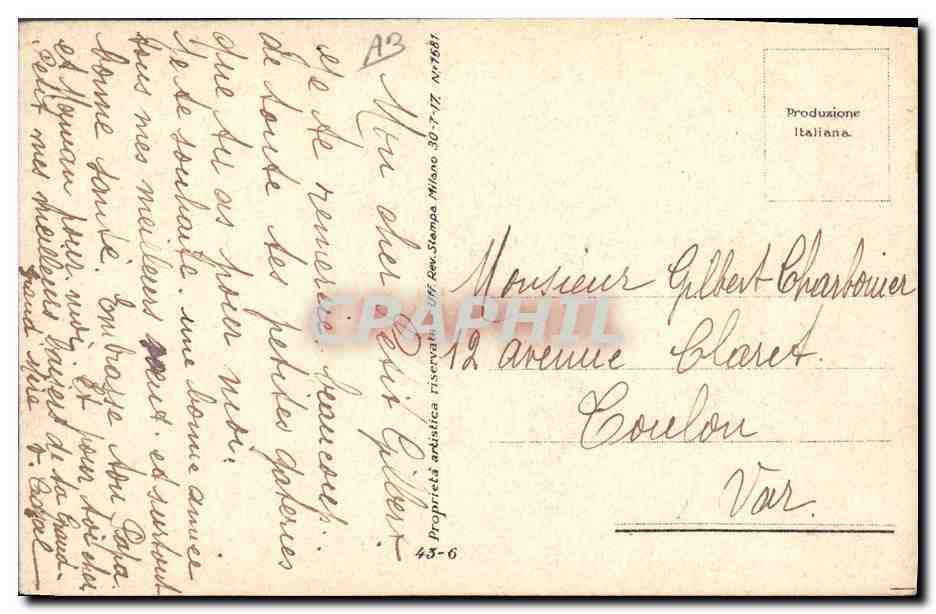 AB
Mon cher Petit Gilbert
et Je te remercie beaucoup.
de toute tes petites gateries
que tu as pour moi.
Je te souhaite. une bonne année
tous mes meilleurs et surtout
bonne santé. Embrasse ton Papa
et Maman pour moi. Et pour toi cher
Petit mes meilleurs baisers de ta Grand-
Grand Mère
Proprietà artistica riservata Uff. Rev. Stampa Milano 30-7-17 Nº 1681
43-6
Produzione
Italiana.
Monsieur Gilbert Charbonier
12 avenue Claret.
Toulon
Var.
CPAPHIL